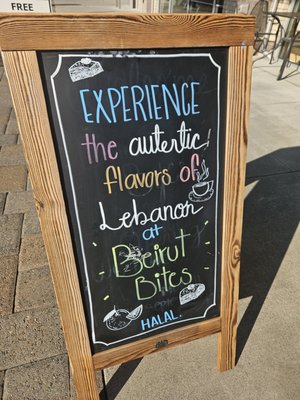 FREE
EXPERIENCE
the autentic!
flavors of
Lebanon
at
Beirut
Bites
HALAL!